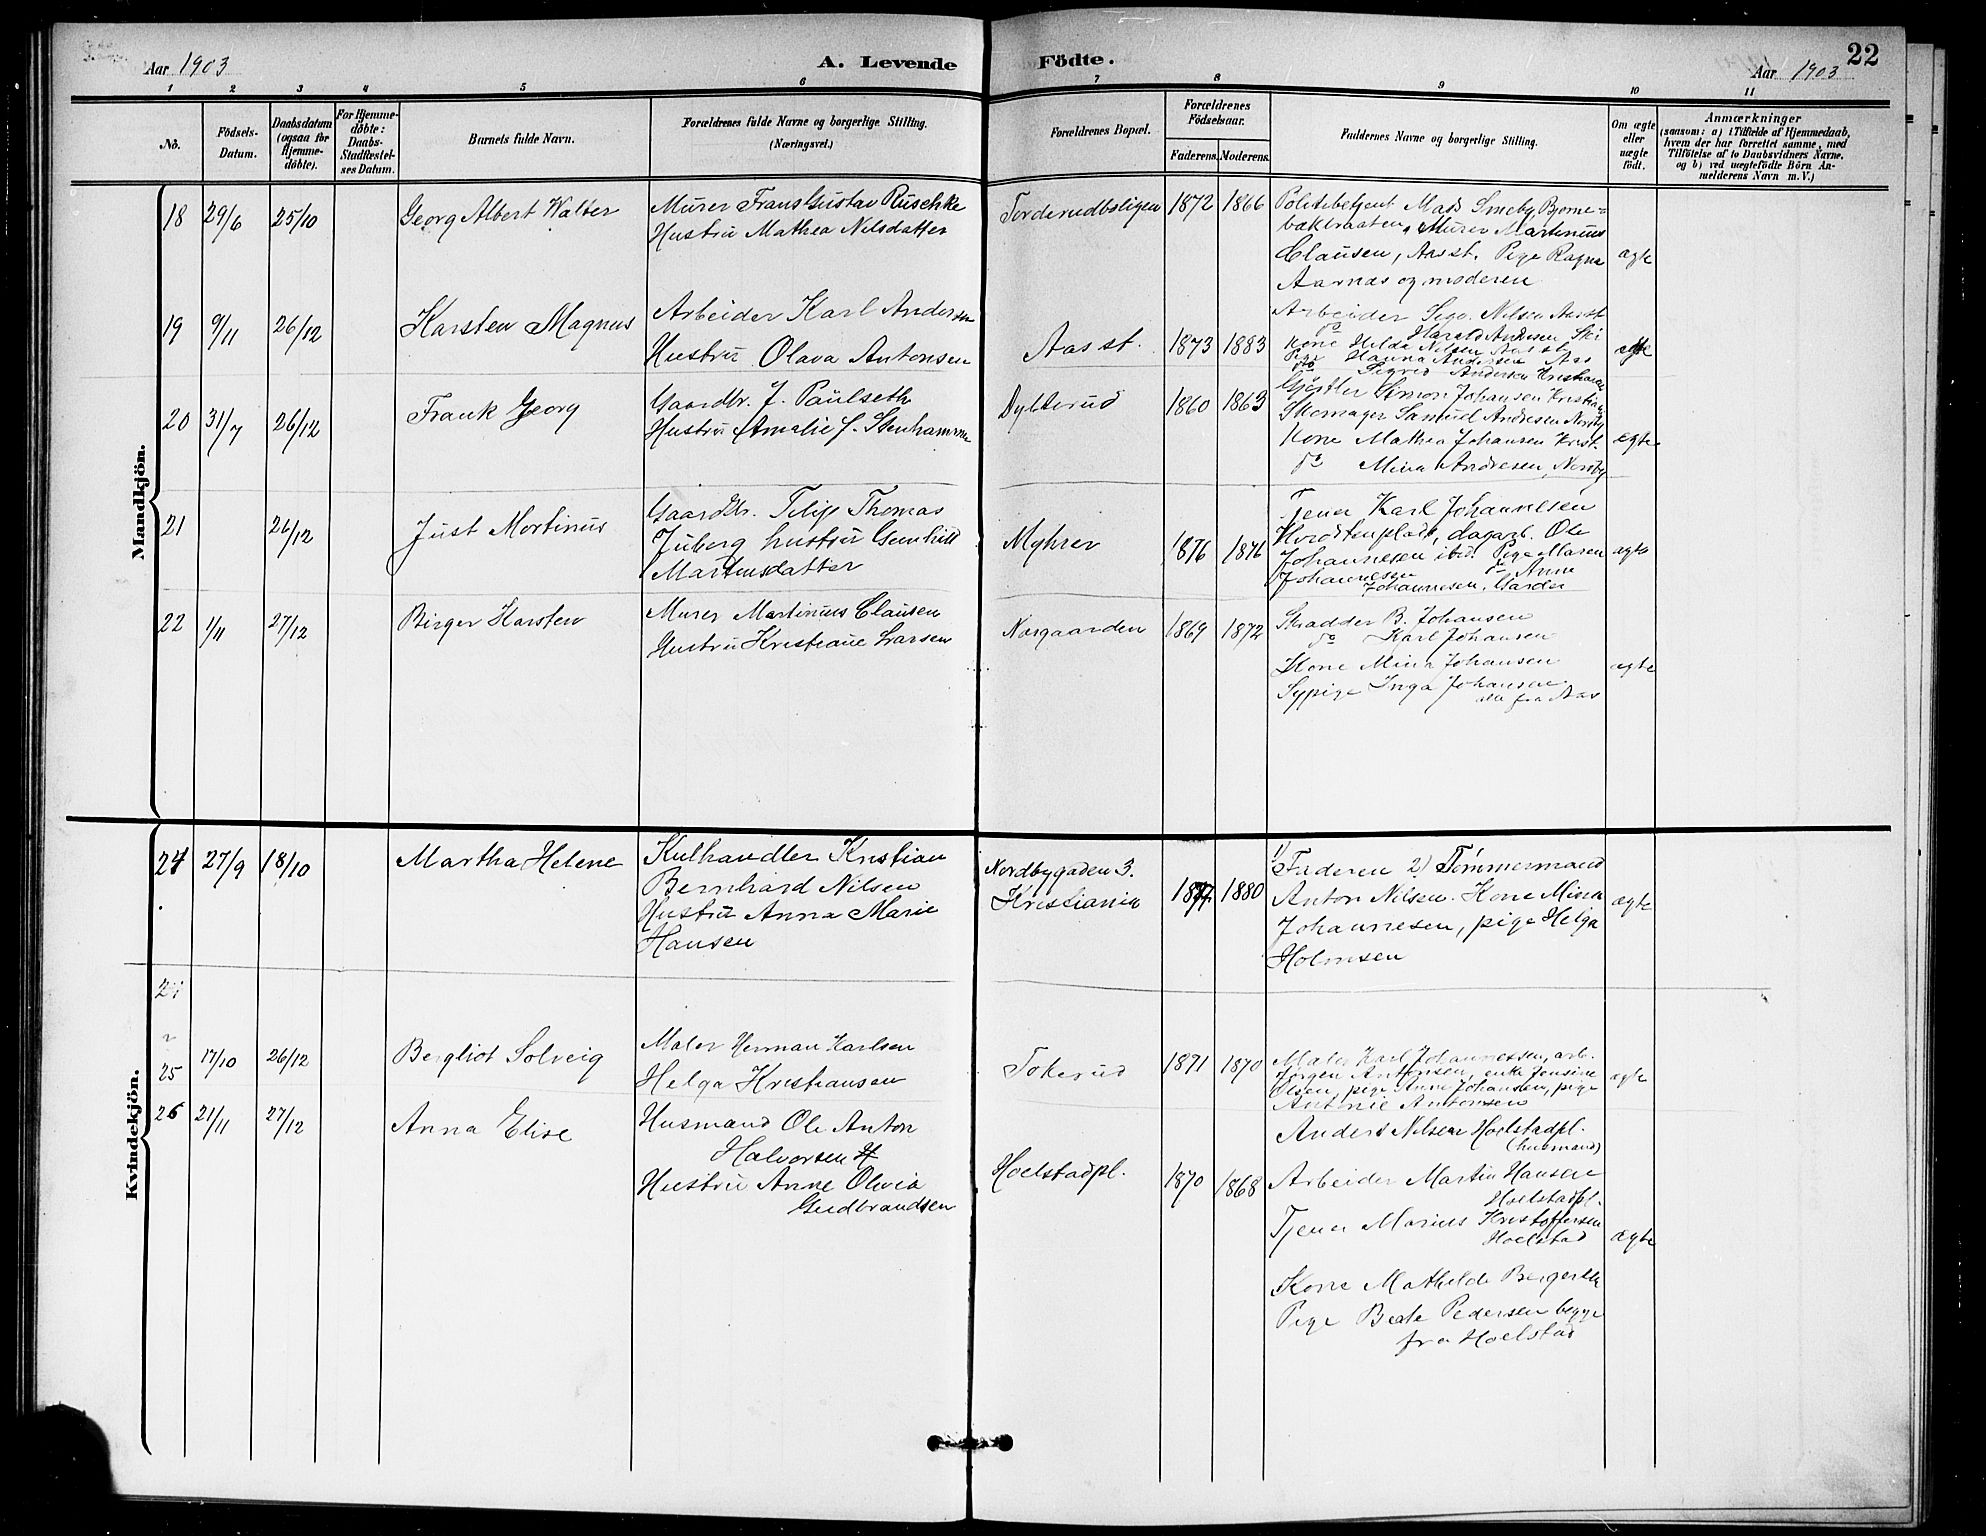 Aar 1903
A. Levende Födte.
22
Aar 1903
1 2 3 4 5 6 7 8 9 10 11
No.
Födsels-
Datum.
Daabsdatum
(ogsaa for
Hjemme-
döbte).
For Hjemme-
döbte:
Daabs-
Stadfæstel-
ses Datum.
Barnets fulde Navn.
Forældrenes fulde Navne og borgerlige Stilling.
(Næringsvei.)
Forældrenes Bopæl.
Forældrenes
Födselsaar.
Faderens. Moderens.
Faddernes Navne og borgerlige Stilling.
Om ægte
eller
uægte
födt.
Anmærkninger
(saasom: a) i Tilfælde af Hjemmedaab,
hvem der har forrettet samme, med
Tilföielse af to Daabsvidners Navne.
og b) ved uægtefödte Börn An-
melderens Navn m. V.)
Mandkjön.
18 29/6 25/10 Georg Albert Walter
Murer Frans Gustav Ruschke
Hustru Mathea Nilsdatter
Torderudboligen 1872 1866
Politibetjent Mads Smeby Bjørne-
bækbraaten, Murer Martinius
Clausen, Aas st. Pige Ragna
Aarnas og moderen
ægte
19 9/11 26/12 Karsten Magnus
Arbeider Karl Andersen
Hustru Olava Antonsen
Aas st. 1873 1883
Arbeider Sigv. Nilsen Aas st
do Harald Andersen Ski
Kone Hilda Nilsen Aas st
Pige Hanna Andersen Aas
do Sigrid Andersen Kristiania
ægte
20 31/7 26/12 Frank Georg
Gaardbr. J. Paulseth
Hustru Amalie J. Stenhammer
Dybterud 1860 1863
Gjørtler Simon Johansen Kristiania
Skomager Samuel Andresen Nordby
Kone Mathea Johansen Krist.
do Mina Andresen, Nordby
ægte
21 26/12 Just Mortinus
Gaardbr. Filip Thomas
Juberg hustru Gunhild
Martinsdatter
Myhrer 1876 1876
Tjener Karl Johannesen
dagarb. Ole
Johannesen ibd. Pige Maren
Johannesen do Anne
Johannesen, Garder
ægte
22 1/11 27/12 Birger Karsten
Murer Martinius Clausen
Hustru Kristiane Larsen
Norgaarden 1869 1872
Skradder B. Johansen
do Karl Johansen
Kone Mina Johansen
Sypige Inga Johansen
alle fra Aas
ægte
Kvindekjön.
24 27/9 18/10 Martha Helene
Kulhandler Kristian
Bernhard Nilsen
Hustru Anna Marie
Hansen
Nordbygaden 3.
Kristiania
1877 1880
1) Faderen 2) Tømmermand
Anton Nilsen. Kone Mina
Johannesen, pige Helga
Holmsen
ægte
24
25 17/10 26/12 Bergliot Solveig
Maler Herman Karlsen
Helga Kristiansen
Tokerud 1871 1870
Maler Karl Johannessen, arb.
Jørgen Antonsen, enke Jensine
Olsen, pige Anne Johansen, pige
Antonie Antonsen
ægte
26 21/11 27/12 Anna Elise
Husmand Ole Anton
Halvorsen H
Hustru Anne Olivia
Gudbrandsen
Hoelstadpl. 1870 1868
Anders Nilsen Hoelstadpl.
(husmand)
Arbeider Martin Hansen
Hoelstadpl.
Tjener Marius Kristoffersen
Hoelstad
Kone Mathilde
Pige Beate Pedersen begge
fra Hoelstad
ægte